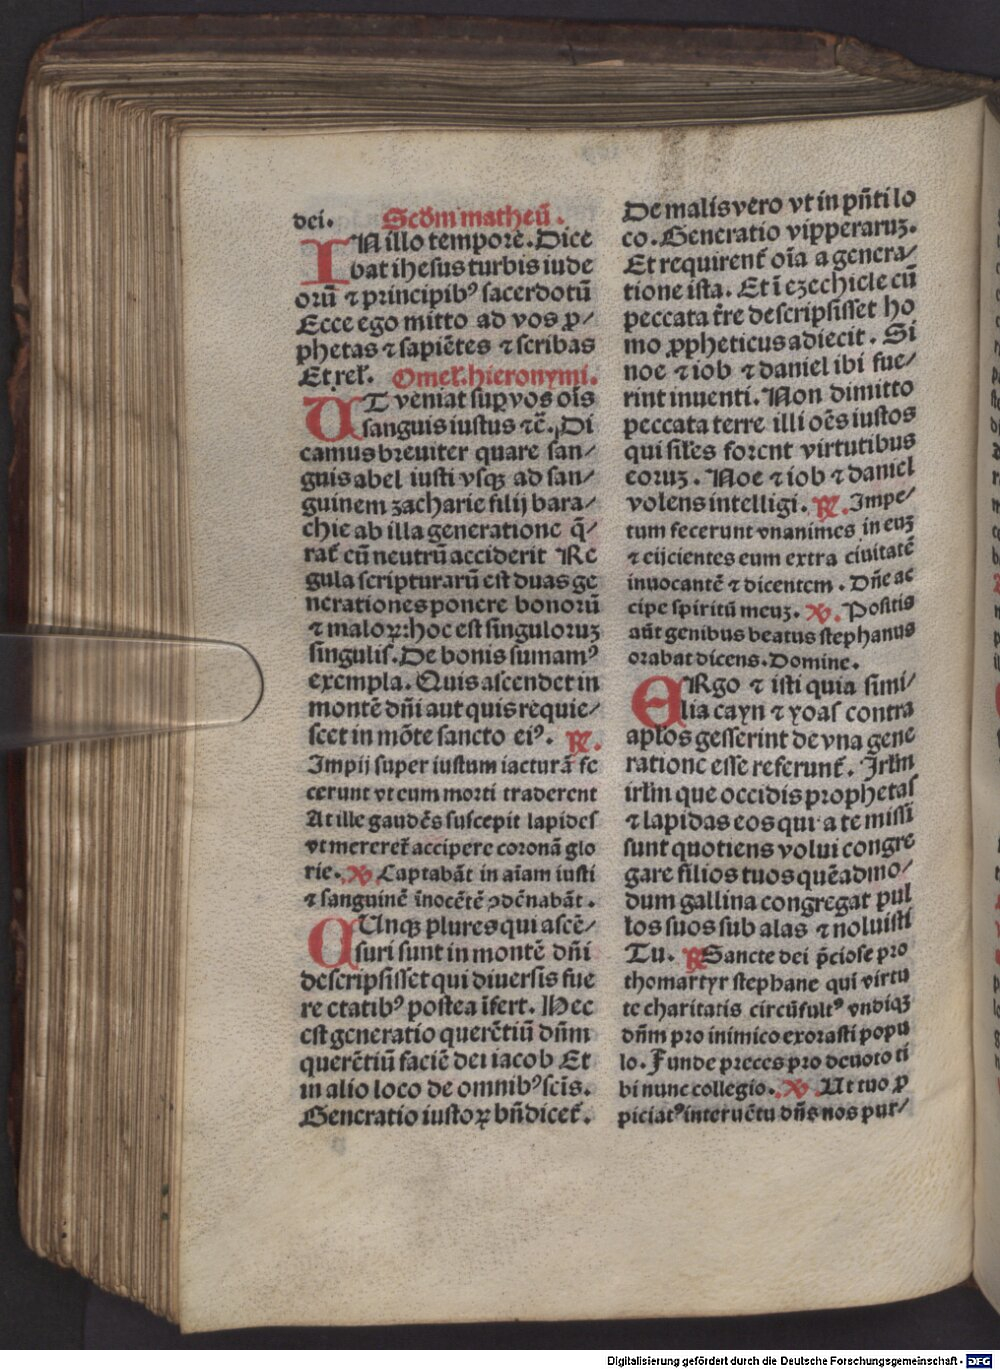 dei. Scd̄m matheū.
IN illo tempore. Dice
bat ihesus turbis iude
orū ⁊ principibꝰ sacerdotū
Ecce ego mitto ad vos ꝓ/
phetas ⁊ sapiētes ⁊ scribas
Et rel̄. Omel̄. hieronymi.
UT veniat suꝑ vos oīs
sanguis iustus ⁊c̄. Di
camus breuiter quare san/
guis abel iusti vsqꝫ ad san/
guinem zacharie filij bara/
chie ab illa generatione q̄/
rat̄ cū neutrū acciderit Re
gula scripturarū est duas ge
nerationes ponere bonorū
⁊ maloꝝ: hoc est singuloruꝫ
singulis. De bonis sumamꝰ
exempla. Quis ascendet in
montē dn̄i aut quis requie/
scet in mōte sancto eiꝰ. ℟.
Impij super iustum iacturā fe
cerunt vt eum morti traderent
At ille gaudēs suscepit lapides
vt mereret̄ accipere coronā glo
rie. ℣. Captabāt in aīam iusti
⁊ sanguinē īnocētē ꝯdēnabāt.
CUnqꝫ plures qui ascē/
suri sunt in montē dn̄i
descripsisset qui diuersis fue
re etatibꝰ postea īfert. Hec
est generatio querētiū dn̄m
querētiū faciē dei iacob Et
in alio loco de omnibꝰ scīs.
Generatio iustoꝝ bn̄dicet̄.
De malis vero vt in pn̄ti lo
co. Generatio vipperaruꝫ.
Et requirent̄ oīa a genera/
tione ista. Et ī ezechiele cū
peccata t̄re descripsisset ho
mo ꝓpheticus adiecit. Si
noe ⁊ iob ⁊ daniel ibi fue/
rint inuenti. Non dimitto
peccata terre illi oēs iustos
qui sil̄es forent virtutibus
eoruꝫ. Noe ⁊ iob ⁊ daniel
volens intelligi. ℟. Impe/
tum fecerunt vnanimes in euꝫ
⁊ eijcientes eum extra ciuitatē
inuocantē ⁊ dicentem. Dn̄e ac
cipe spiritū meuꝫ. ℣. Positis
aūt genibus beatus stephanus
orabat dicens. Domine.
ERgo ⁊ isti quia simi/
lia cayn ⁊ yoas contra
apl̄os gesserint de vna gene
ratione esse referunt̄. Irl̄m
irl̄m que occidis prophetas
⁊ lapidas eos qui a te missi
sunt quotiens volui congre
gare filios tuos quēadmo/
dum gallina congregat pul
los suos sub alas ⁊ noluisti
Tu. ℟ Sancte dei p̄ciose pro
thomartyr stephane qui virtu
te charitatis circūfultꝰ vndiqꝫ
dn̄m pro inimico exorasti popu
lo. Funde preces pro deuoto ti
bi nunc collegio. ℣. Ut tuo ꝓ
piciatꝰ interuētu dn̄s nos pur/
Digitalisierung gefördert durch die Deutsche Forschungsgemeinschaft - DFG